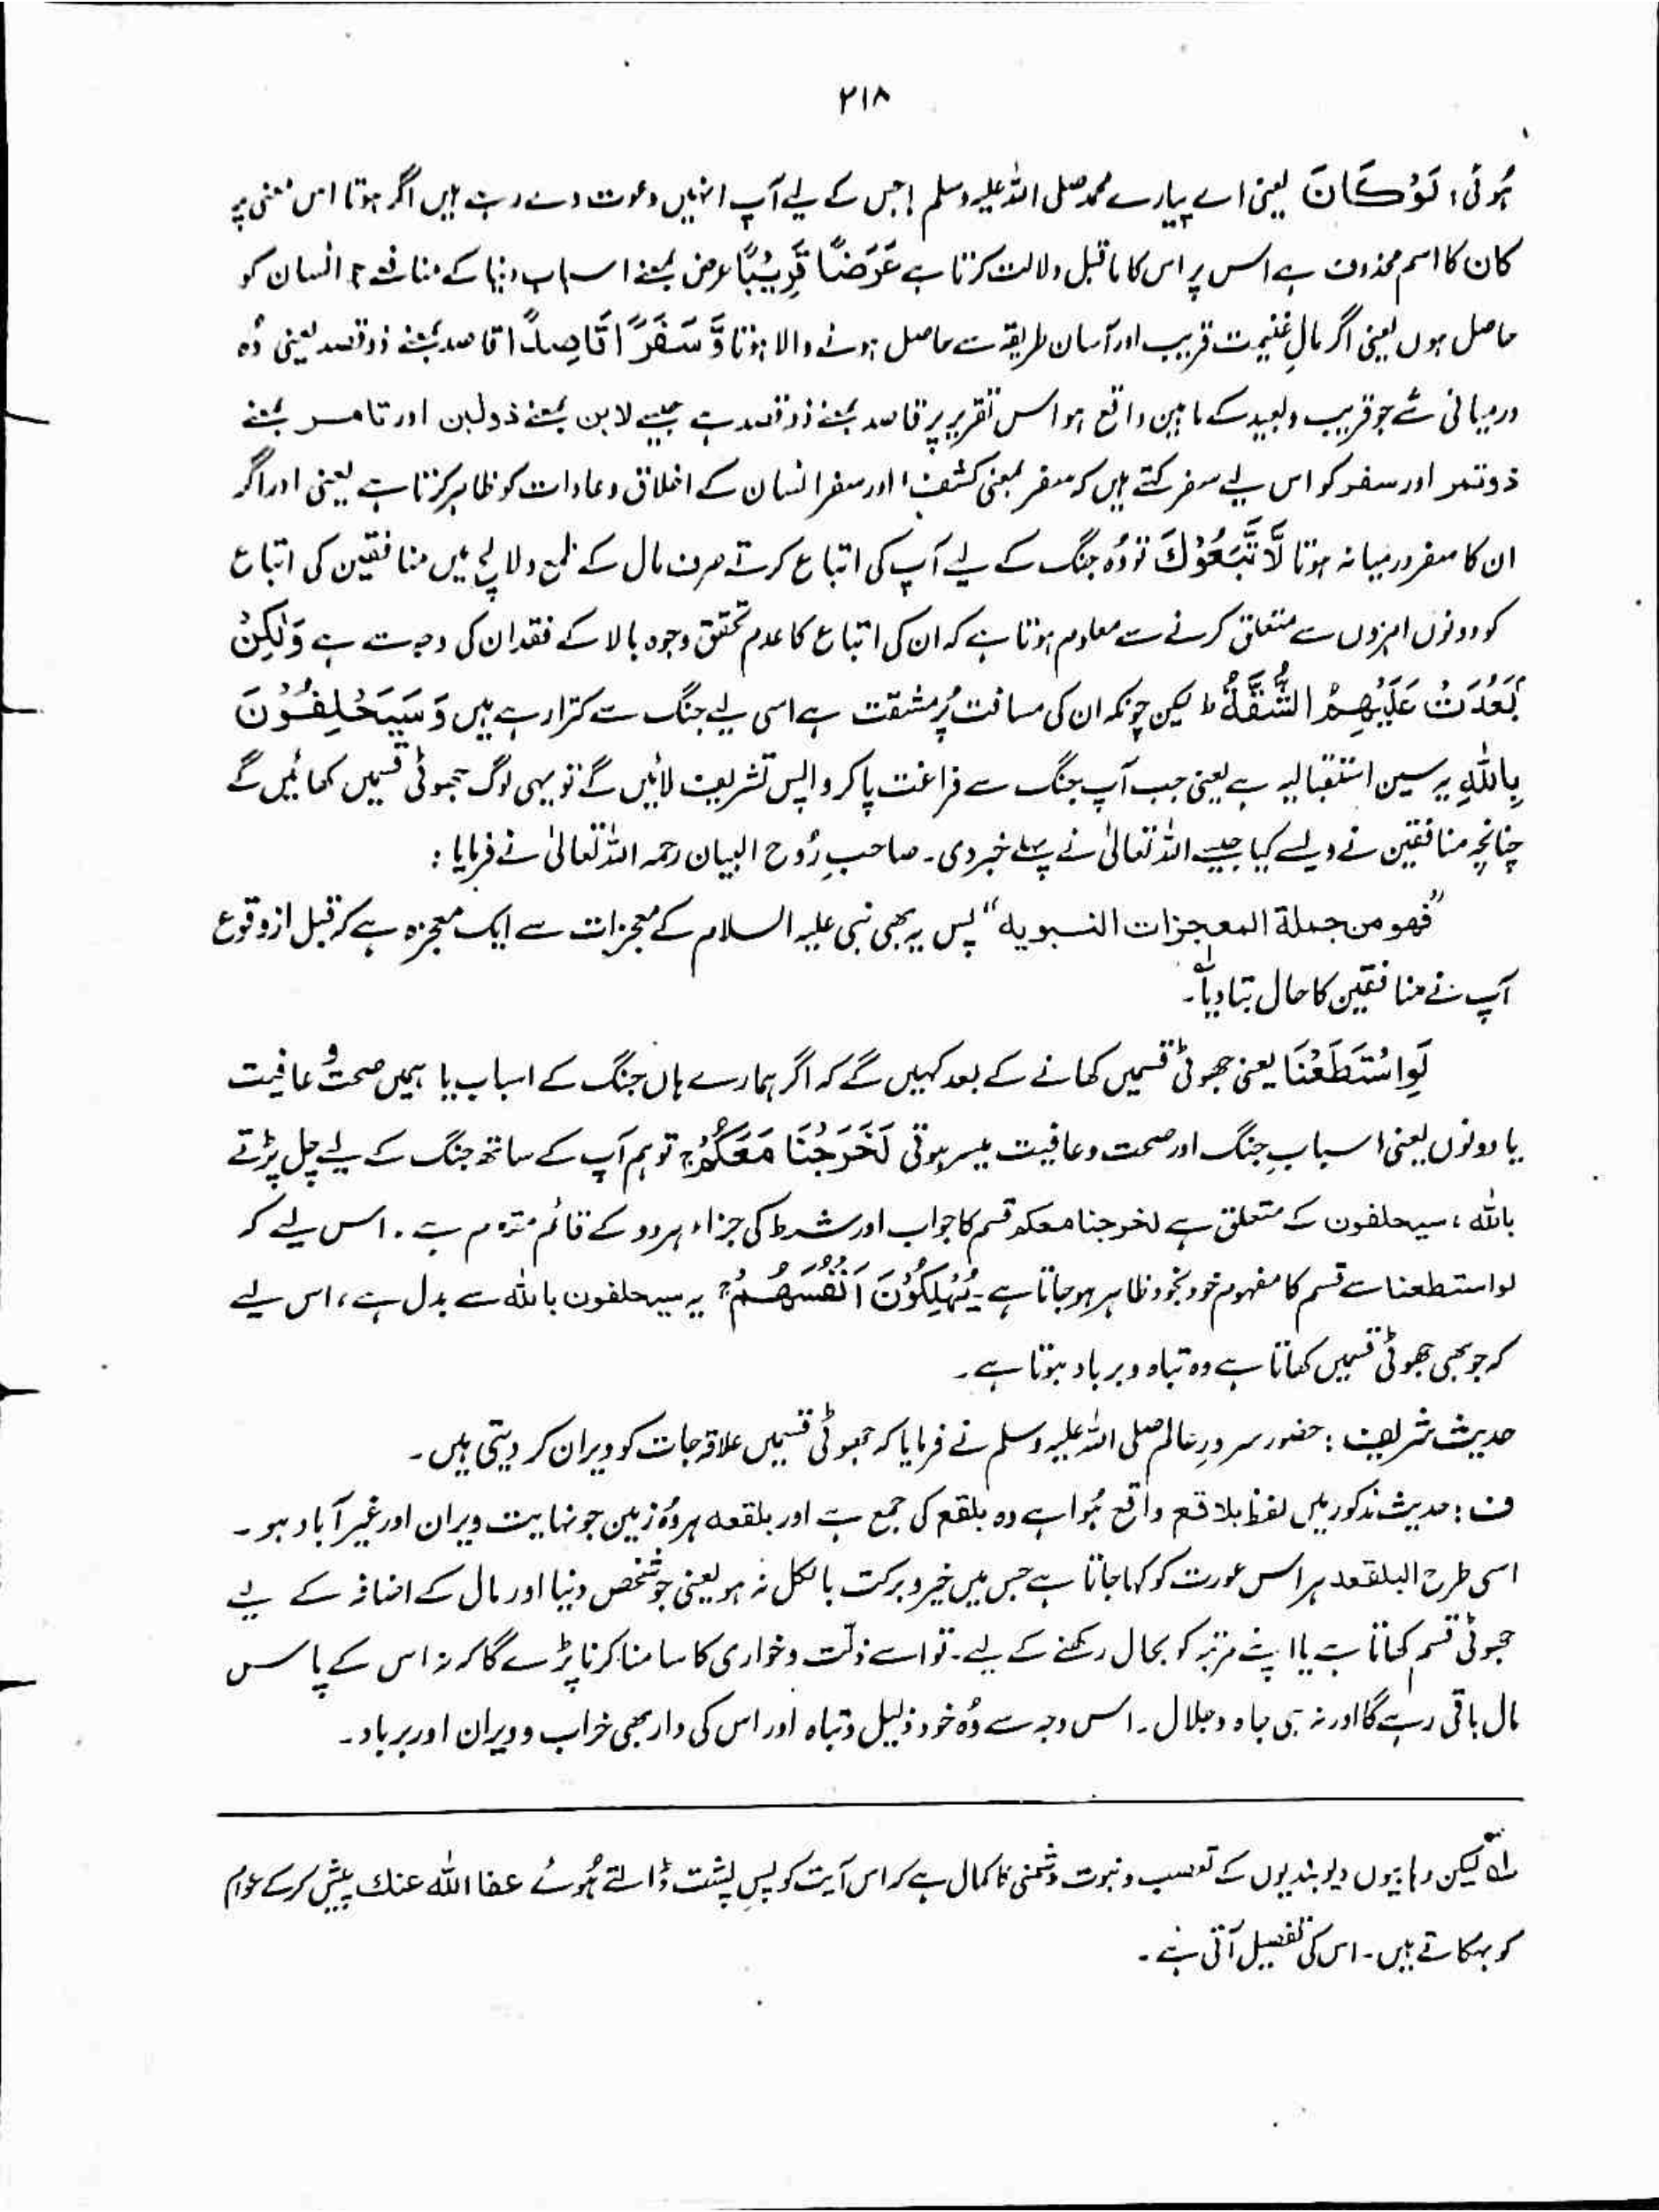 ۲۱۸
ہُوئی؛ لَوْ كَانَ یعنی اے پیارے محمد صلی اللہ علیہ وسلم ! جس کے لیے آپ انہیں دعوت دے رہے ہیں اگر ہوتا اس معنی پر
کان کا اسم محذوف ہے اس پر اس کا ماقبل دلالت کرتا ہے عَرَضًا قَرِیْبًا عرض بمعنے اسباب دنیا کے منافع انسان کو
حاصل ہوں یعنی اگر مالِ غنیمت قریب اور آسان طریقہ سے حاصل ہونے والا ہوتا وَّ سَفَرًا قَاصِدًا قاصد بمعنے ذوقصد یعنی وُہ
درمیانی شے جو قریب و بعید کے مابین واقع ہو اس تقریر پر قاصد بمعنے ذوقصد ہے جیسے لابن بمعنے ذولبن اور تامر بمعنے
ذوتمر اور سفر کو اس لیے سفر کہتے ہیں کہ سفر بمعنی کشف، اور سفر انسان کے اخلاق و عادات کو ظاہر کرتا ہے یعنی اور اگر
ان کا سفر درمیانہ ہوتا لَّا تَّبَعُوْكَ تو وُہ جنگ کے لیے آپ کی اتباع کرتے صرف مال کے طمع و لالچ میں منافقین کی اتباع
کو دونوں امروں سے متعلق کرنے سے معلوم ہوتا ہے کہ ان کی اتباع کا عدم تحقق وجوہ بالا کے فقدان کی وجہ سے ہے وَلٰکِنْۢ
بَعُدَتْ عَلَیْهِمُ الشُّقَّةُ ط لیکن چونکہ ان کی مسافت پُر مشقت ہے اسی لیے جنگ سے کترا رہے ہیں وَ سَیَحْلِفُوْنَ
بِاللّٰهِ یہ سین استقبالیہ ہے یعنی جب آپ جنگ سے فراغت پا کر واپس تشریف لائیں گے تو یہی لوگ جھوٹی قسمیں کھائیں گے
چنانچہ منافقین نے ویسے کیا جیسے اللہ تعالیٰ نے پہلے خبر دی۔ صاحبِ رُوح البیان رحمہ اللہ تعالیٰ نے فرمایا :
”فهو من جملة المعجزات النبویه“ پس یہ بھی نبی علیہ السلام کے معجزات سے ایک معجزہ ہے کہ قبل از وقوع
آپ نے منافقین کا حال بتا دیا لہ۔
لَوِاسْتَطَعْنَا یعنی جھوٹی قسمیں کھانے کے بعد کہیں گے کہ اگر ہمارے ہاں جنگ کے اسباب یا ہمیں صحت و عافیت
یا دونوں یعنی اسبابِ جنگ اور صحت و عافیت میسر ہوتی لَخَرَجْنَا مَعَکُمْ ج تو ہم آپ کے ساتھ جنگ کے لیے چل پڑتے
باللہ ، سیحلفون کے متعلق ہے لخرجنا معکم قسم کا جواب اور شرط کی جزاء ہر دو کے قائم مقام ہے۔ اس لیے کہ
لو استطعنا سے قسم کا مفہوم خود بخود ظاہر ہو جاتا ہے۔ یُهْلِکُوْنَ اَنْفُسَهُمْ ج یہ سیحلفون باللہ سے بدل ہے، اس لیے
کہ جو بھی جھوٹی قسمیں کھاتا ہے وہ تباہ و برباد ہوتا ہے۔
حدیث شریف : حضور سرورِ عالم صلی اللہ علیہ وسلم نے فرمایا کہ جھوٹی قسمیں علاقہ جات کو ویران کر دیتی ہیں۔
ف : حدیث مذکور میں لفظ بلاقع واقع ہُوا ہے وہ بلقع کی جمع ہے اور بلقعہ ہر وُہ زمین جو نہایت ویران اور غیر آباد ہو۔
اسی طرح البلقعہ ہر اس عورت کو کہا جاتا ہے جس میں خیر و برکت بالکل نہ ہو یعنی جو شخص دنیا اور مال کے اضافہ کے لیے
جھوٹی قسم کھاتا ہے یا اپنے مرتبہ کو بحال رکھنے کے لیے۔ تو اسے ذلّت و خواری کا سامنا کرنا پڑے گا کہ نہ اس کے پاس
مال باقی رہے گا اور نہ ہی جاہ و جلال۔ اس وجہ سے وُہ خود ذلیل و تباہ اور اس کی دار بھی خراب و ویران اور برباد۔
لہ لیکن وہابیوں دیوبندیوں کے تعصب و نبوت دشمنی کا کمال ہے کہ اس آیت کو پسِ پشت ڈالتے ہُوئے عفا اللہ عنك پیش کر کے عوام
کو بہکاتے ہیں۔ اس کی تفصیل آتی ہے۔